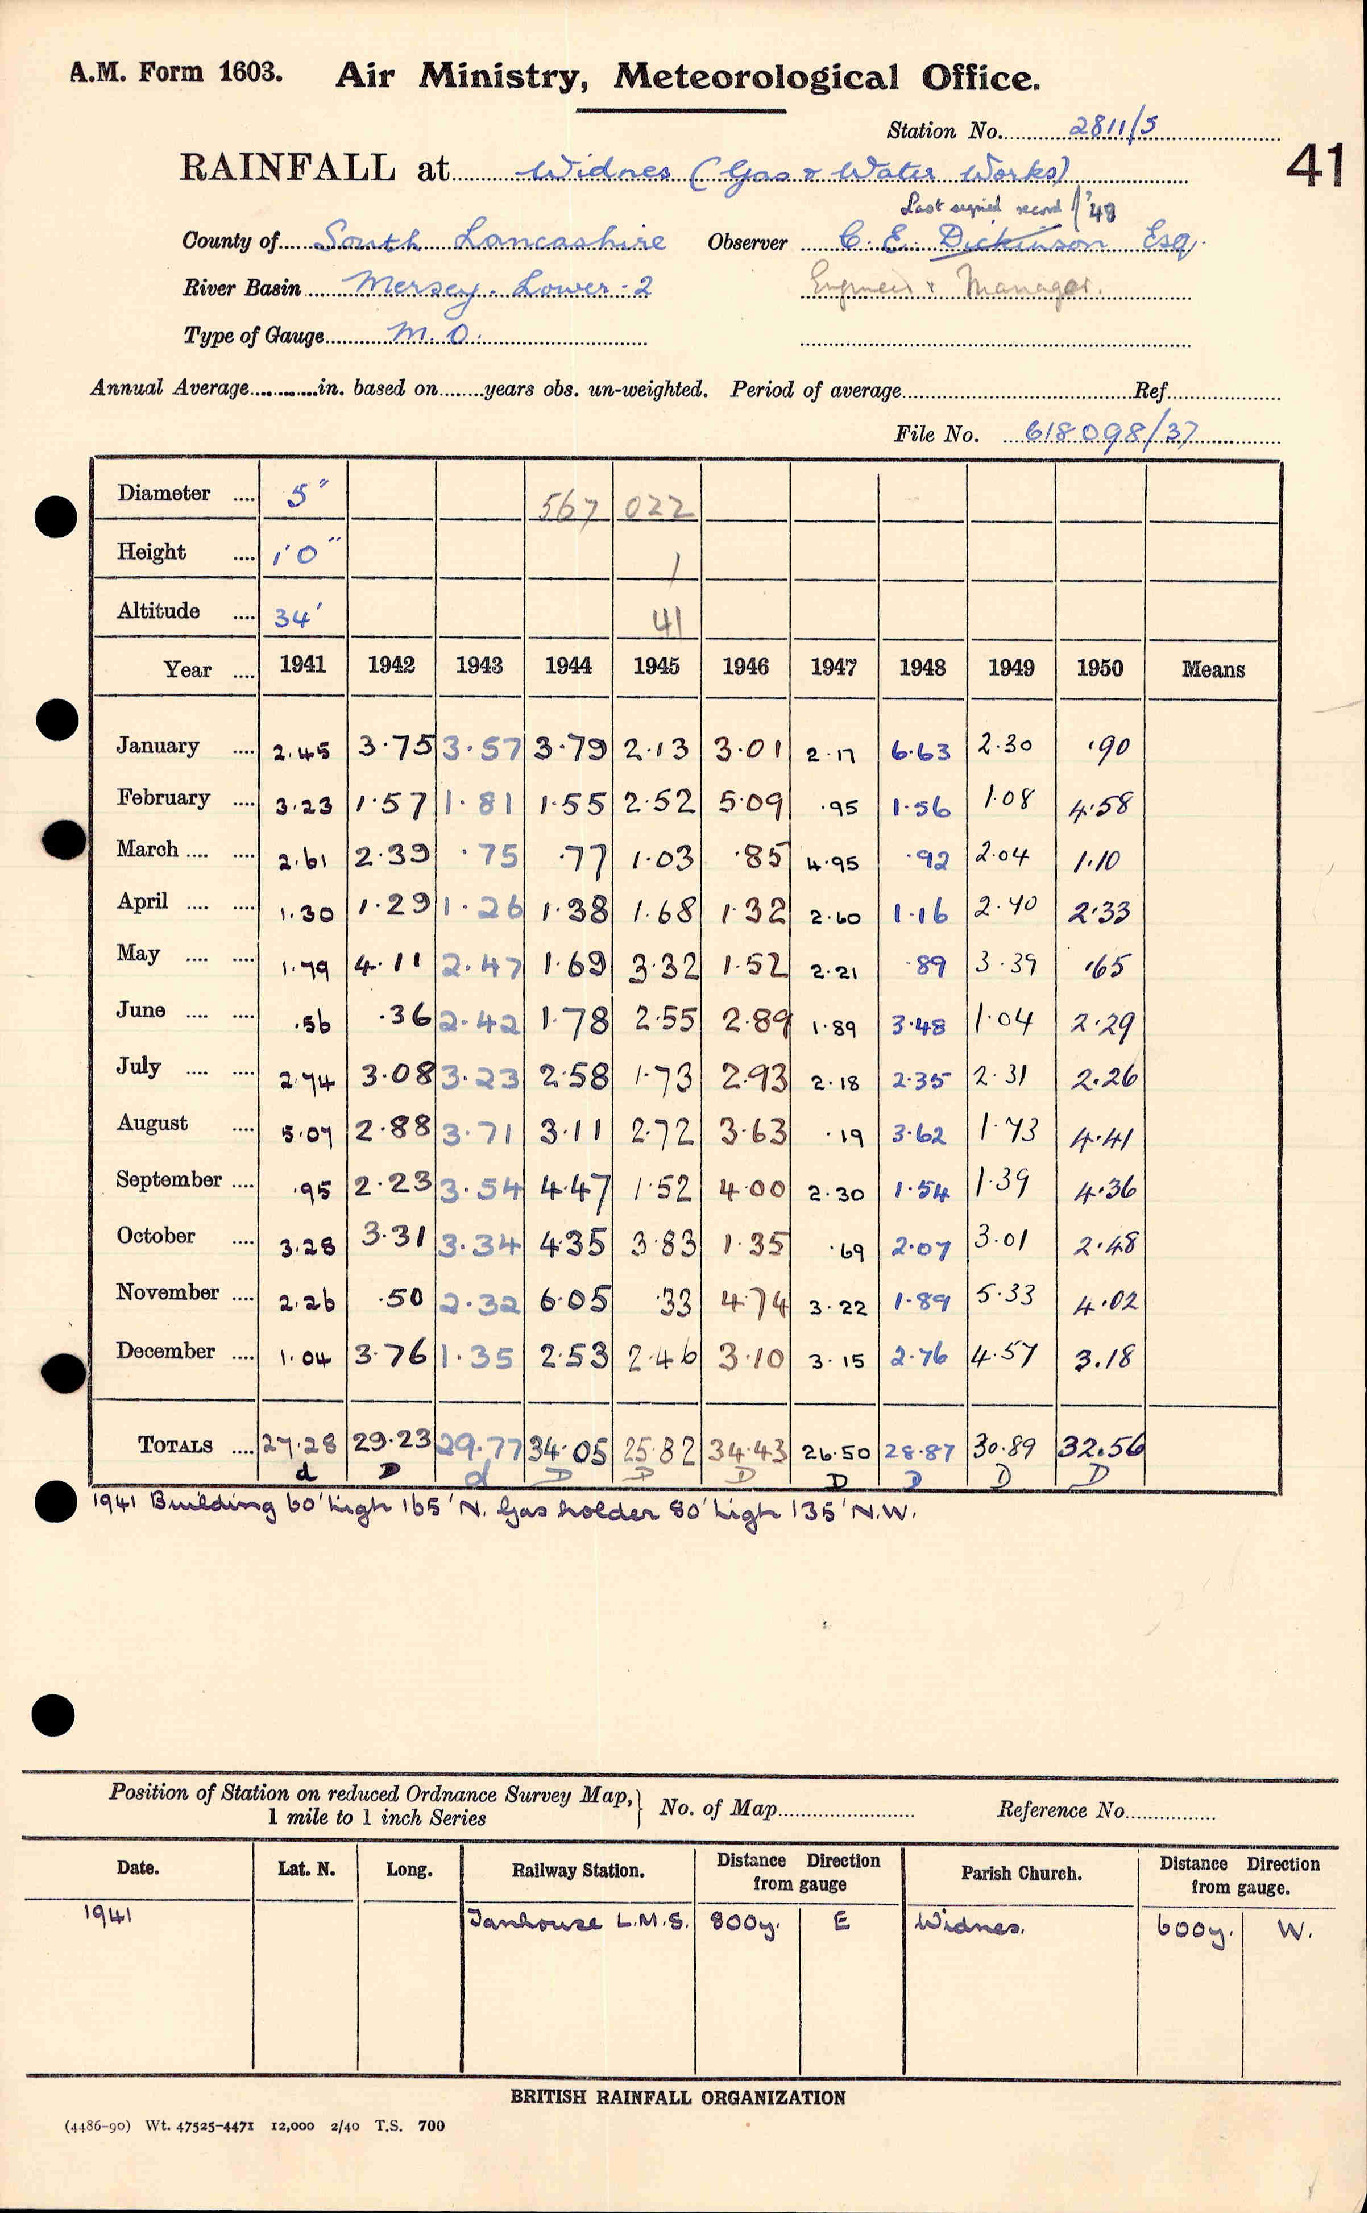 A.M. Form 1603. Air Ministry, Meteorological Office.
Station No. 2811/5
41
RAINFALL at Widnes (Gas & Water Works)
Last signed record 1/'48
County of South Lancashire Observer C. E. Dickinson Esq.
River Basin Mersey. Lower - 2 Engineer & Manager.
Type of Gauge M.O.
Annual Average in. based on years obs. un-weighted. Period of average Ref.
File No. 618098/37
Diameter 5" 567 022
Height 1'0" 1
Altitude 34' 41
Year 1941 1942 1943 1944 1945 1946 1947 1948 1949 1950 Means
January 2.45 3.75 3.57 3.79 2.13 3.01 2.17 6.63 2.30 .90
February 3.23 1.57 1.81 1.55 2.52 5.09 .95 1.56 1.08 4.58
March 2.61 2.39 .75 .77 1.03 .85 4.95 .92 2.04 1.10
April 1.30 1.29 1.26 1.38 1.68 1.32 2.60 1.16 2.40 2.33
May 1.79 4.11 2.47 1.69 3.32 1.52 2.21 .89 3.39 .65
June .56 .36 2.42 1.78 2.55 2.89 1.89 3.48 1.04 2.29
July 2.74 3.08 3.23 2.58 1.73 2.93 2.18 2.35 2.31 2.26
August 5.07 2.88 3.71 3.11 2.72 3.63 .19 3.62 1.73 4.41
September .95 2.23 3.54 4.47 1.52 4.00 2.30 1.54 1.39 4.36
October 3.28 3.31 3.34 4.35 3.83 1.35 .69 2.07 3.01 2.48
November 2.26 .50 2.32 6.05 .33 4.74 3.22 1.89 5.33 4.02
December 1.04 3.76 1.35 2.53 2.46 3.10 3.15 2.76 4.57 3.18
TOTALS 27.28 29.23 29.77 34.05 25.82 34.43 26.50 28.87 30.89 32.56
d D d D D D D D D D
1941 Building 60' high 165' N. Gas holder 80' high 135' N.W.
Position of Station on reduced Ordnance Survey Map, } No. of Map Reference No.
1 mile to 1 inch Series
Date. Lat. N. Long. Railway Station. Distance Direction from gauge Parish Church. Distance Direction from gauge.
1941 Tanhouse L.M.S. 800y. E Widnes. 600y. W.
BRITISH RAINFALL ORGANIZATION
(4486-90) Wt. 47525-4471 12,000 2/40 T.S. 700